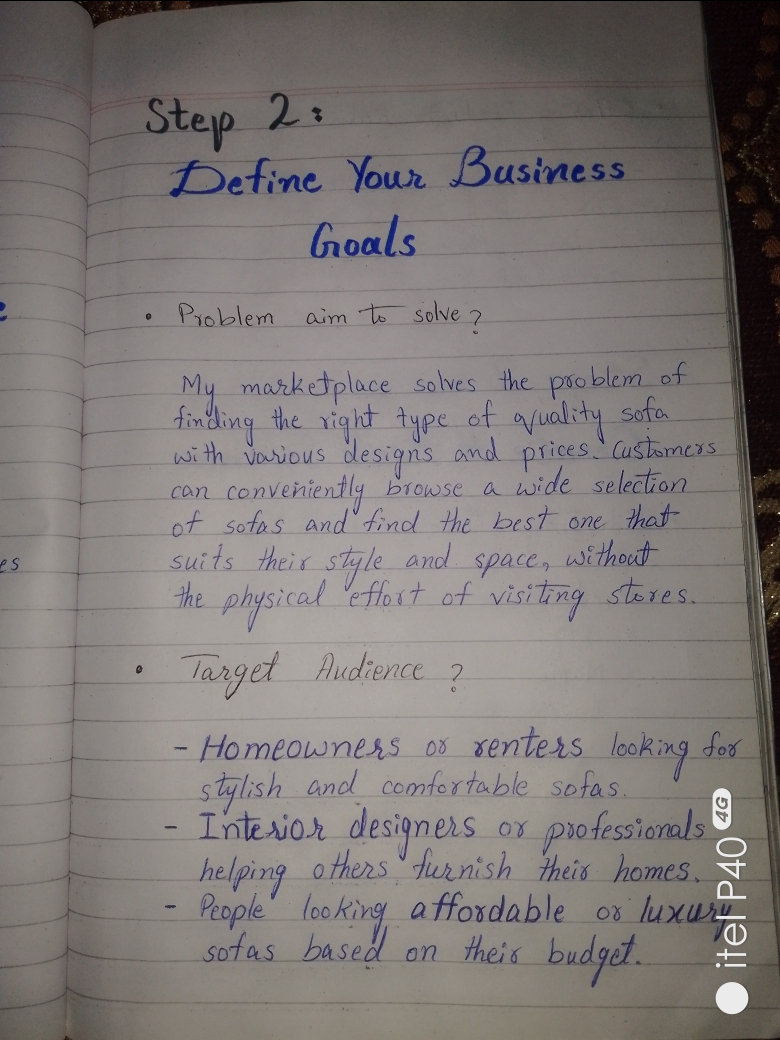 Step 2:
Define Your Business
Goals
• Problem aim to solve?
My marketplace solves the problem of
finding the right type of quality sofa
with various designs and prices. Customers
can conveniently browse a wide selection
of sofas and find the best one that
suits their style and space, without
the physical effort of visiting stores.
• Target Audience?
- Homeowners or renters looking for
stylish and comfortable sofas.
- Interior designers or professionals
helping others furnish their homes.
- People looking affordable or luxury
sofas based on their budget.
es
itel P40 4G